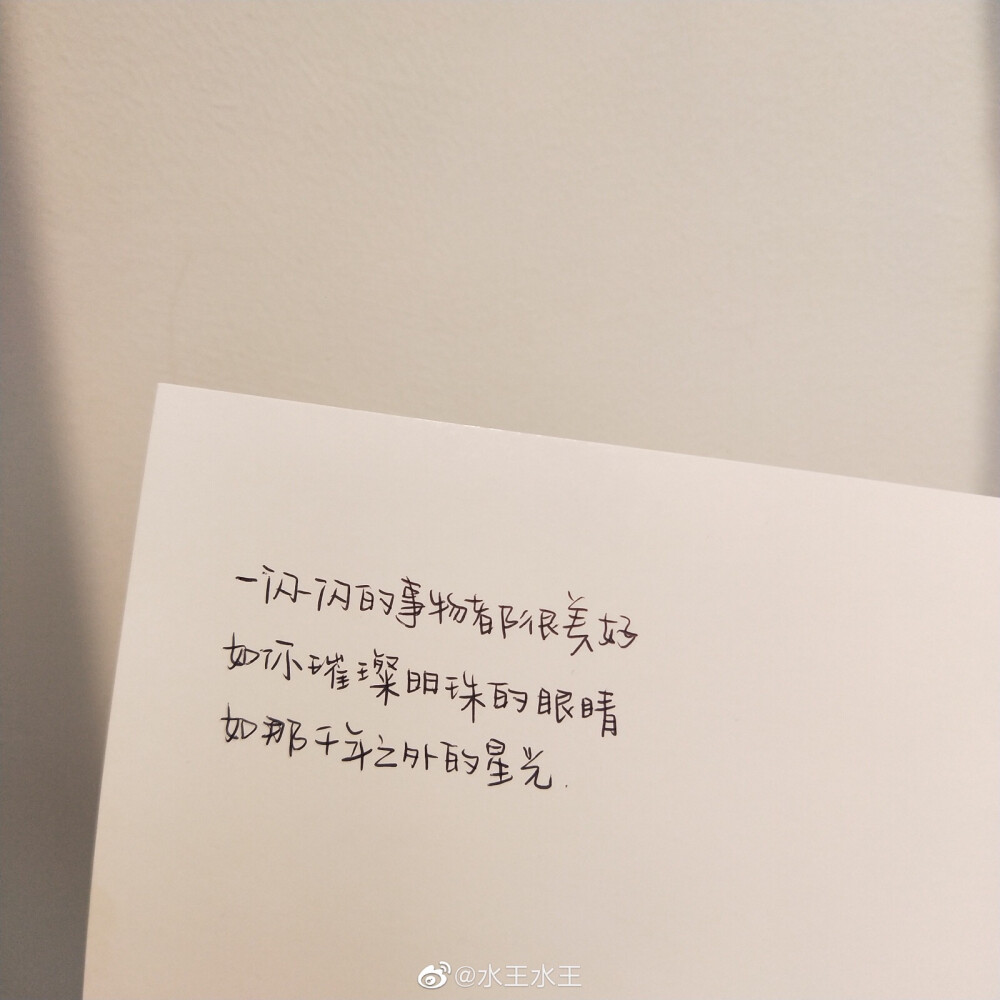 一闪闪的事物都很美好
如你璀璨明珠的眼睛
如那千年之外的星光.
@水王水王